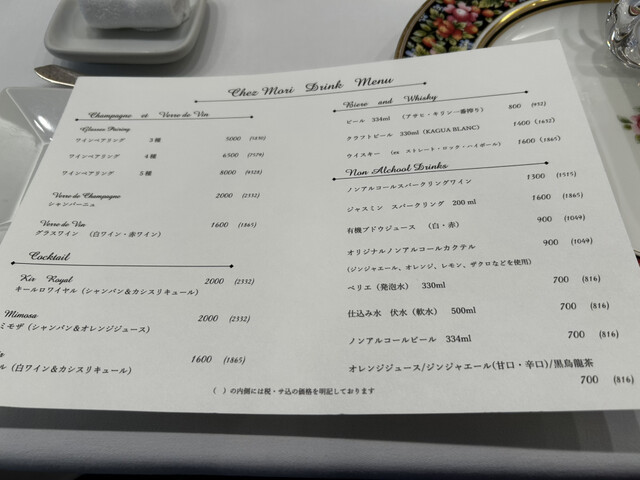 Chez Mori Drink Menu
Champagne et Verre de Vin
Glasses Pairing
ワインペアリング 3種 5000 (5830)
ワインペアリング 4種 6500 (7579)
ワインペアリング 5種 8000 (9328)
Verre de Champagne 2000 (2332)
シャンパーニュ
Verre de Vin 1600 (1865)
グラスワイン (白ワイン・赤ワイン)
Cocktail
Kir Royal 2000 (2332)
キールロワイヤル (シャンパン&カシスリキュール)
Mimosa 2000 (2332)
ミモザ (シャンパン&オレンジジュース)
1600 (1865)
ル (白ワイン&カシスリキュール)
Biere and Whisky
ビール 334ml (アサヒ・キリン一番搾り) 800 (932)
クラフトビール 330ml (KAGUA BLANC) 1400 (1632)
ウイスキー (ex ストレート・ロック・ハイボール) 1600 (1865)
Non Alchool Drinks
ノンアルコールスパークリングワイン 1300 (1515)
ジャスミン スパークリング 200 ml 1600 (1865)
有機ブドウジュース (白・赤) 900 (1049)
オリジナルノンアルコールカクテル 900 (1049)
(ジンジャエール、オレンジ、レモン、ザクロなどを使用)
ペリエ (発泡水) 330ml 700 (816)
仕込み水 伏水 (軟水) 500ml 700 (816)
ノンアルコールビール 334ml 700 (816)
オレンジジュース/ジンジャエール(甘口・辛口)/黒烏龍茶
700 (816)
( ) の内側には税・サ込の価格を明記しております